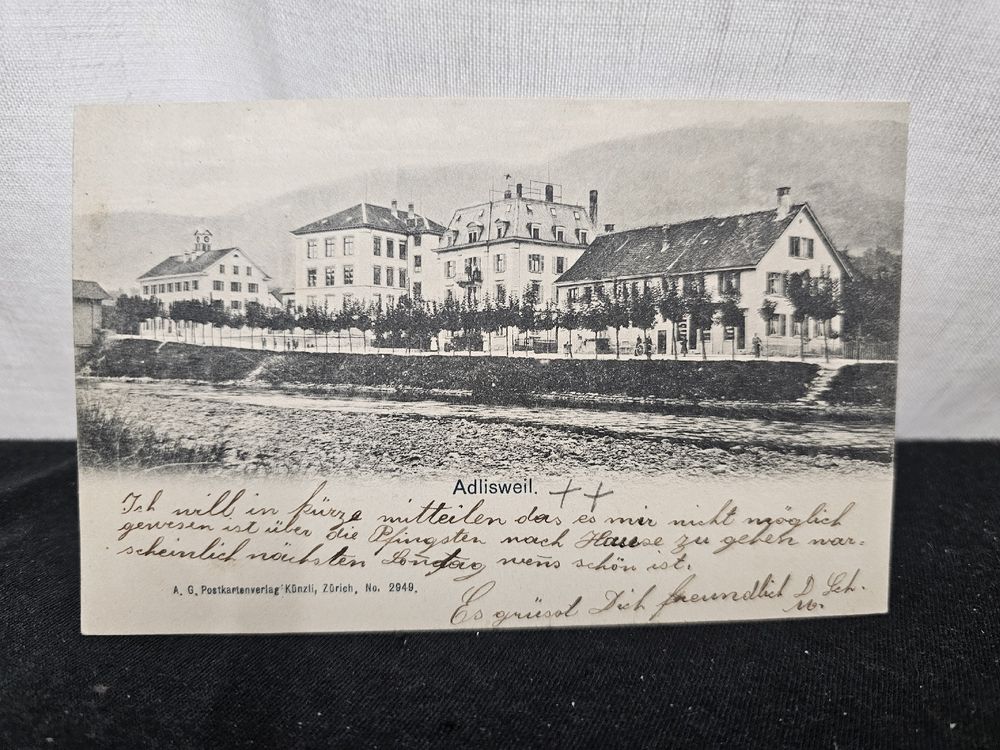 Adlisweil. ++
Ich will in kürze mitteilen das es mir nicht möglich
gewesen ist über die Pfingsten nach Hause zu gehen war-
scheinlich nächsten Sontag wens schön ist.
A. G. Postkartenverlag Künzli, Zürich, No. 2949.
Es grüsst Dich freundlich D. Sch.